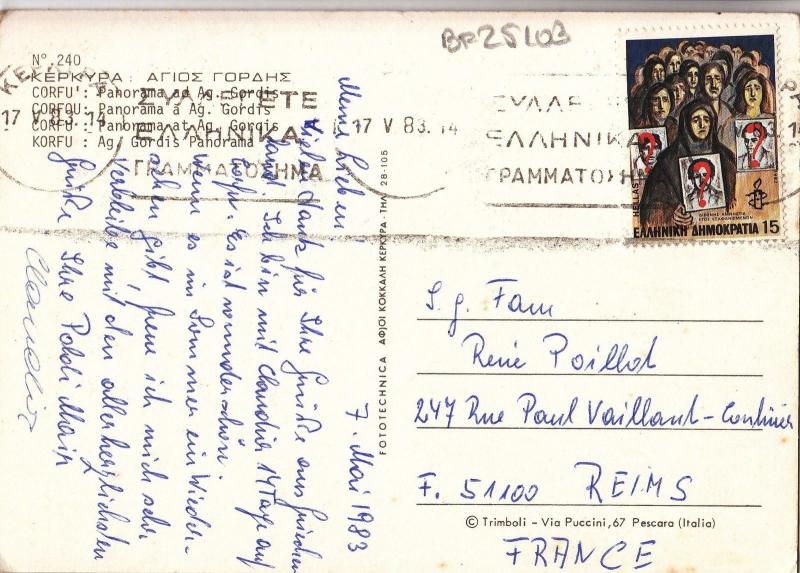 BP25L03
N°. 240
ΚΕΡΚΥΡΑ : ΑΓΙΟΣ ΓΟΡΔΗΣ
CORFU' : Panorama ad Ag. Gordis
CORFOU: Panorama à Ag. Gordis
CORFU : Panorama at Ag. Gordis
KORFU : Ag. Gordis Panorama
17 V 83. 14
ΕΛΛΗΝΙΚΑ
ΓΡΑΜΜΑΤΟΣΗΜΑ
17 V 83. 14
ΣΥΛΛΕ
ΕΛΛΗΝΙΚΑ
ΓΡΑΜΜΑΤΟΣΗΜ
HELLAS
ΔΙΕΘΝΗΣ ΑΜΝΗΣΤΙΑ
ΕΤΟΣ ΕΞΑΦΑΝΙΣΜΕΝΩΝ
ΕΛΛΗΝΙΚΗ ΔΗΜΟΚΡΑΤΙΑ 15
7. Mai 1983
Meine Lieben!
Vielen Dank für Ihre Grüße aus Griechen
land. Ich bin mit Claudia 14 Tage auf
Korfu. Es ist wunderschön.
Wenn es im Sommer ein Wieder-
sehen gibt freue ich mich sehr
Verbleibe mit den allerherzlichsten
Grüße Ihre Poldi
Claudia
FOTOTECHNICA ΑΦΙΟΙ ΚΟΚΚΑΛΗ ΚΕΡΚΥΡΑ · ΤΗΛ 28-105
S. g. Fam
René Poillot
247 Rue Paul Vaillant-Couturier
F. 51100 REIMS
© Trimboli - Via Puccini, 67 Pescara (Italia)
FRANCE